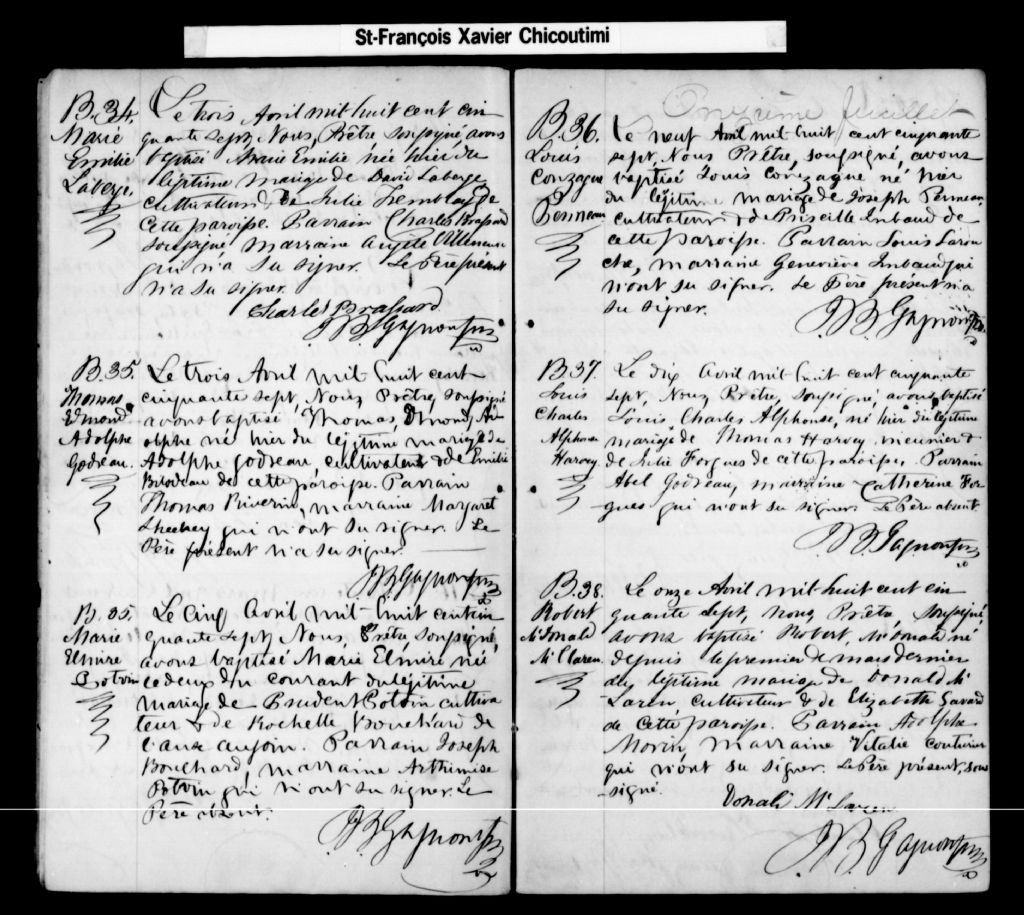 St-François Xavier Chicoutimi
B. 34.
Marie
Emilie
Laberge.
Le trois Avril mil huit cent cin
quante sept, Nous, Prêtre soussigné avons
baptisé Marie Emilie née hier du
légitime mariage de David Laberge
cultivateur & de Julie Tremblay de
cette paroisse. Parrain Charles Brassard
soussigné marraine Angèle
qui n'a su signer. Le Père présent
n'a su signer.
Charles Brassard.
J B Gagnon Ptre
B. 35.
Thomas
Edmond
Adolphe
Godreau.
Le trois Avril mil huit cent
cinquante sept, Nous Prêtre, soussigné
avons baptisé Thomas, Edmond, Ad
olphe né hier du légitime mariage de
Adolphe Godreau, cultivateur & de Emilie
Bilodeau de cette paroisse. Parrain
Thomas Riverin, marraine Margaret
Sheehey qui n'ont su signer. Le
Père présent n'a su signer.
J B Gagnon Ptre
B. 35.
Marie
Elmire
Potvin
Le cinq Avril mil huit cent cin
quante sept, Nous Prêtre soussigné,
avons baptisé Marie Elmire née
le deux du courant du légitime
mariage de Prudent Potvin cultiva
teur & de Rochelle Bouchard de
l'anse au foin. Parrain Joseph
Bouchard, marraine Arthimise
Potvin qui n'ont su signer. Le
Père absent.
J B Gagnon Ptre
Onzième feuillet
B. 36.
Louis
Conzague
Perineau
Le neuf Avril mil huit cent cinquante
sept, Nous Prêtre, soussigné, avons
baptisé Louis Conzague né hier
du légitime mariage de Joseph
cultivateur & de Priscille Imbaud de
cette paroisse. Parrain Louis Larou
che, marraine Geneviève Imbaud qui
n'ont su signer. Le Père présent n'a
su signer.
J B Gagnon Ptre
B 37.
Louis
Charles
Alphonse
Harvey.
Le dix Avril mil huit cent cinquante
sept, Nous Prêtre, soussigné, avons baptisé
Louis, Charles Alphonse, né hier du légitime
mariage de Thomas Harvey meunier &
de Julie Forgues de cette paroisse. Parrain
Abel Godreau, marraine Catherine For
gues qui n'ont su signer. Le Père absent
J B Gagnon Ptre
B. 38.
Robert
McDonald
McClaren.
Le onze Avril mil huit cent cin
quante sept, nous Prêtre soussigné,
avons baptisé Robert, McDonald né
depuis le premier de mars dernier
du légitime mariage de Donald Mc
Laren cultivateur & de Elizabeth Savard
de cette paroisse. Parrain Adolphe
Morin marraine Vitalie couturier
qui n'ont su signer. Le Père présent, sous
signé.
Donald McLaren
J B Gagnon Ptre